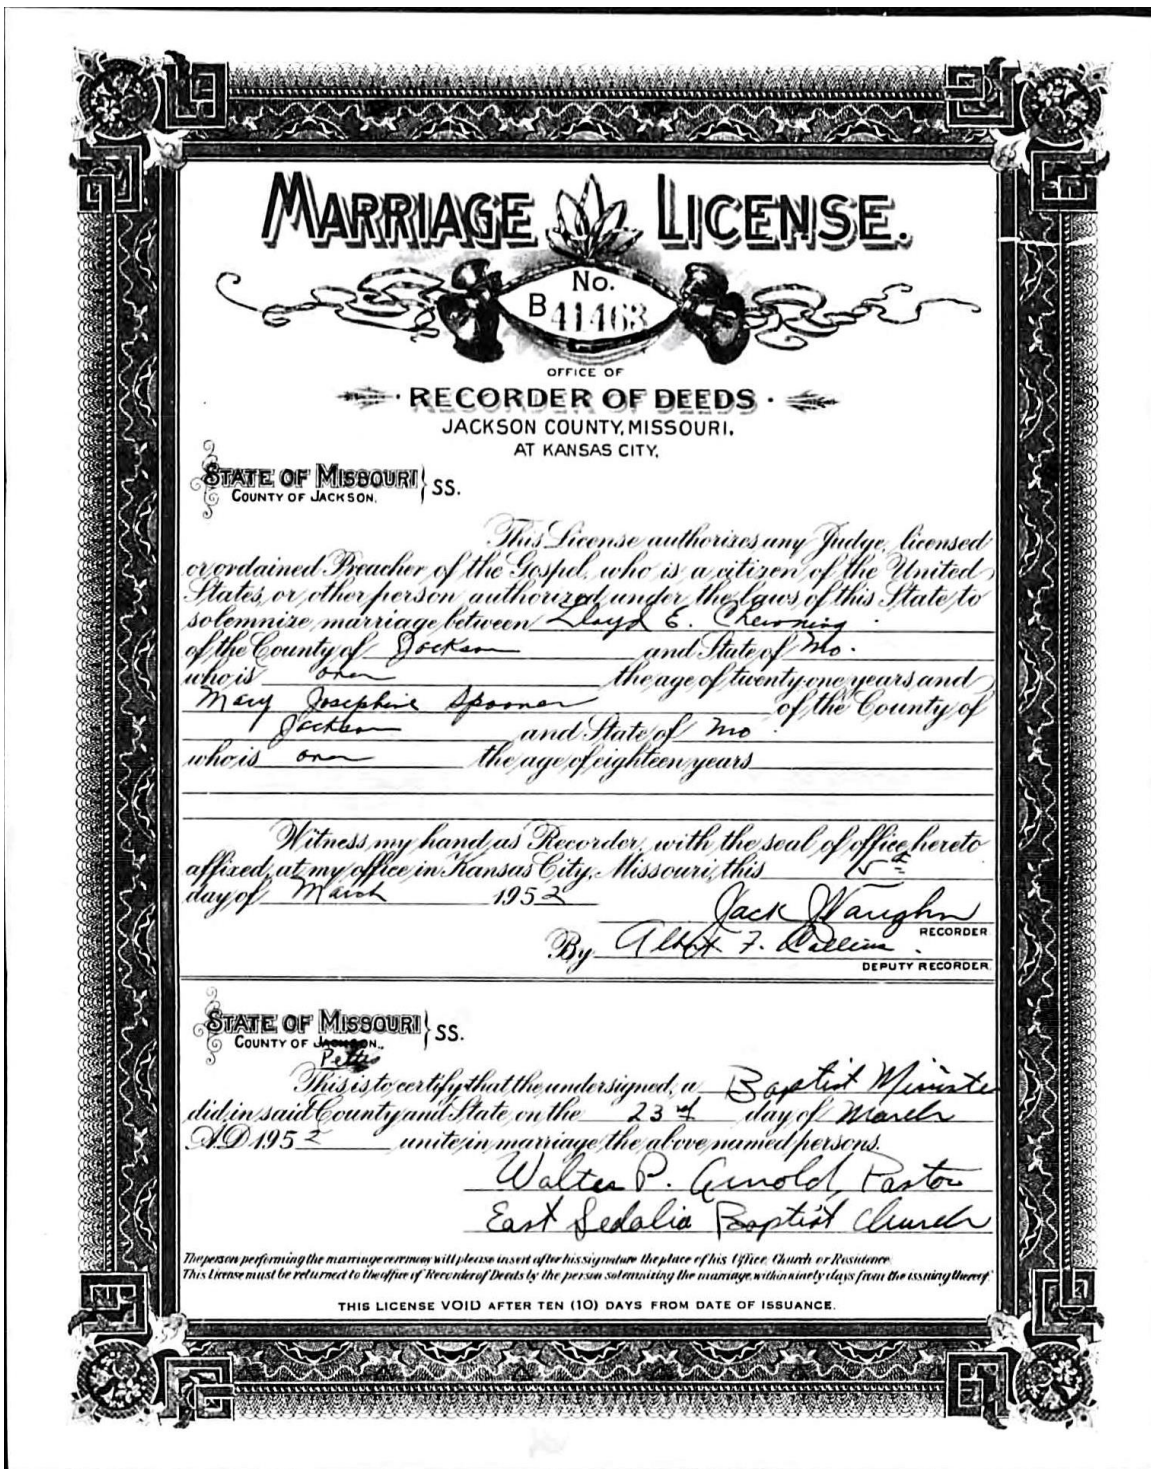 MARRIAGE LICENSE.
No.
B 41463
OFFICE OF
RECORDER OF DEEDS
JACKSON COUNTY, MISSOURI.
AT KANSAS CITY,
STATE OF MISSOURI
COUNTY OF JACKSON. } SS.
This License authorizes any Judge, licensed
or ordained Preacher of the Gospel, who is a citizen of the United
States, or other person authorized under the laws of this State, to
solemnize marriage between Lloyd E. Chewning
of the County of Jackson and State of Mo.
who is over the age of twenty one years and
Mary Josephine Spooner of the County of
Jackson and State of Mo
who is over the age of eighteen years
Witness my hand as Recorder, with the seal of office hereto
affixed, at my office in Kansas City, Missouri, this
day of March 1952
Jack J Vaughn
RECORDER
By Albert F.
DEPUTY RECORDER.
STATE OF MISSOURI
COUNTY OF JACKSON. } SS.
Pettis
This is to certify that the undersigned, a Baptist Minister
did, in said County and State, on the 23rd day of March
A.D. 1952 unite in marriage the above named persons.
Walter P. Arnold, Pastor
East Sedalia Baptist Church
The person performing the marriage ceremony will please insert after his signature the place of his Office, Church or Residence.
This License must be returned to the office of Recorder of Deeds by the person solemnizing the marriage, within ninety days from the issuing thereof.
THIS LICENSE VOID AFTER TEN (10) DAYS FROM DATE OF ISSUANCE.